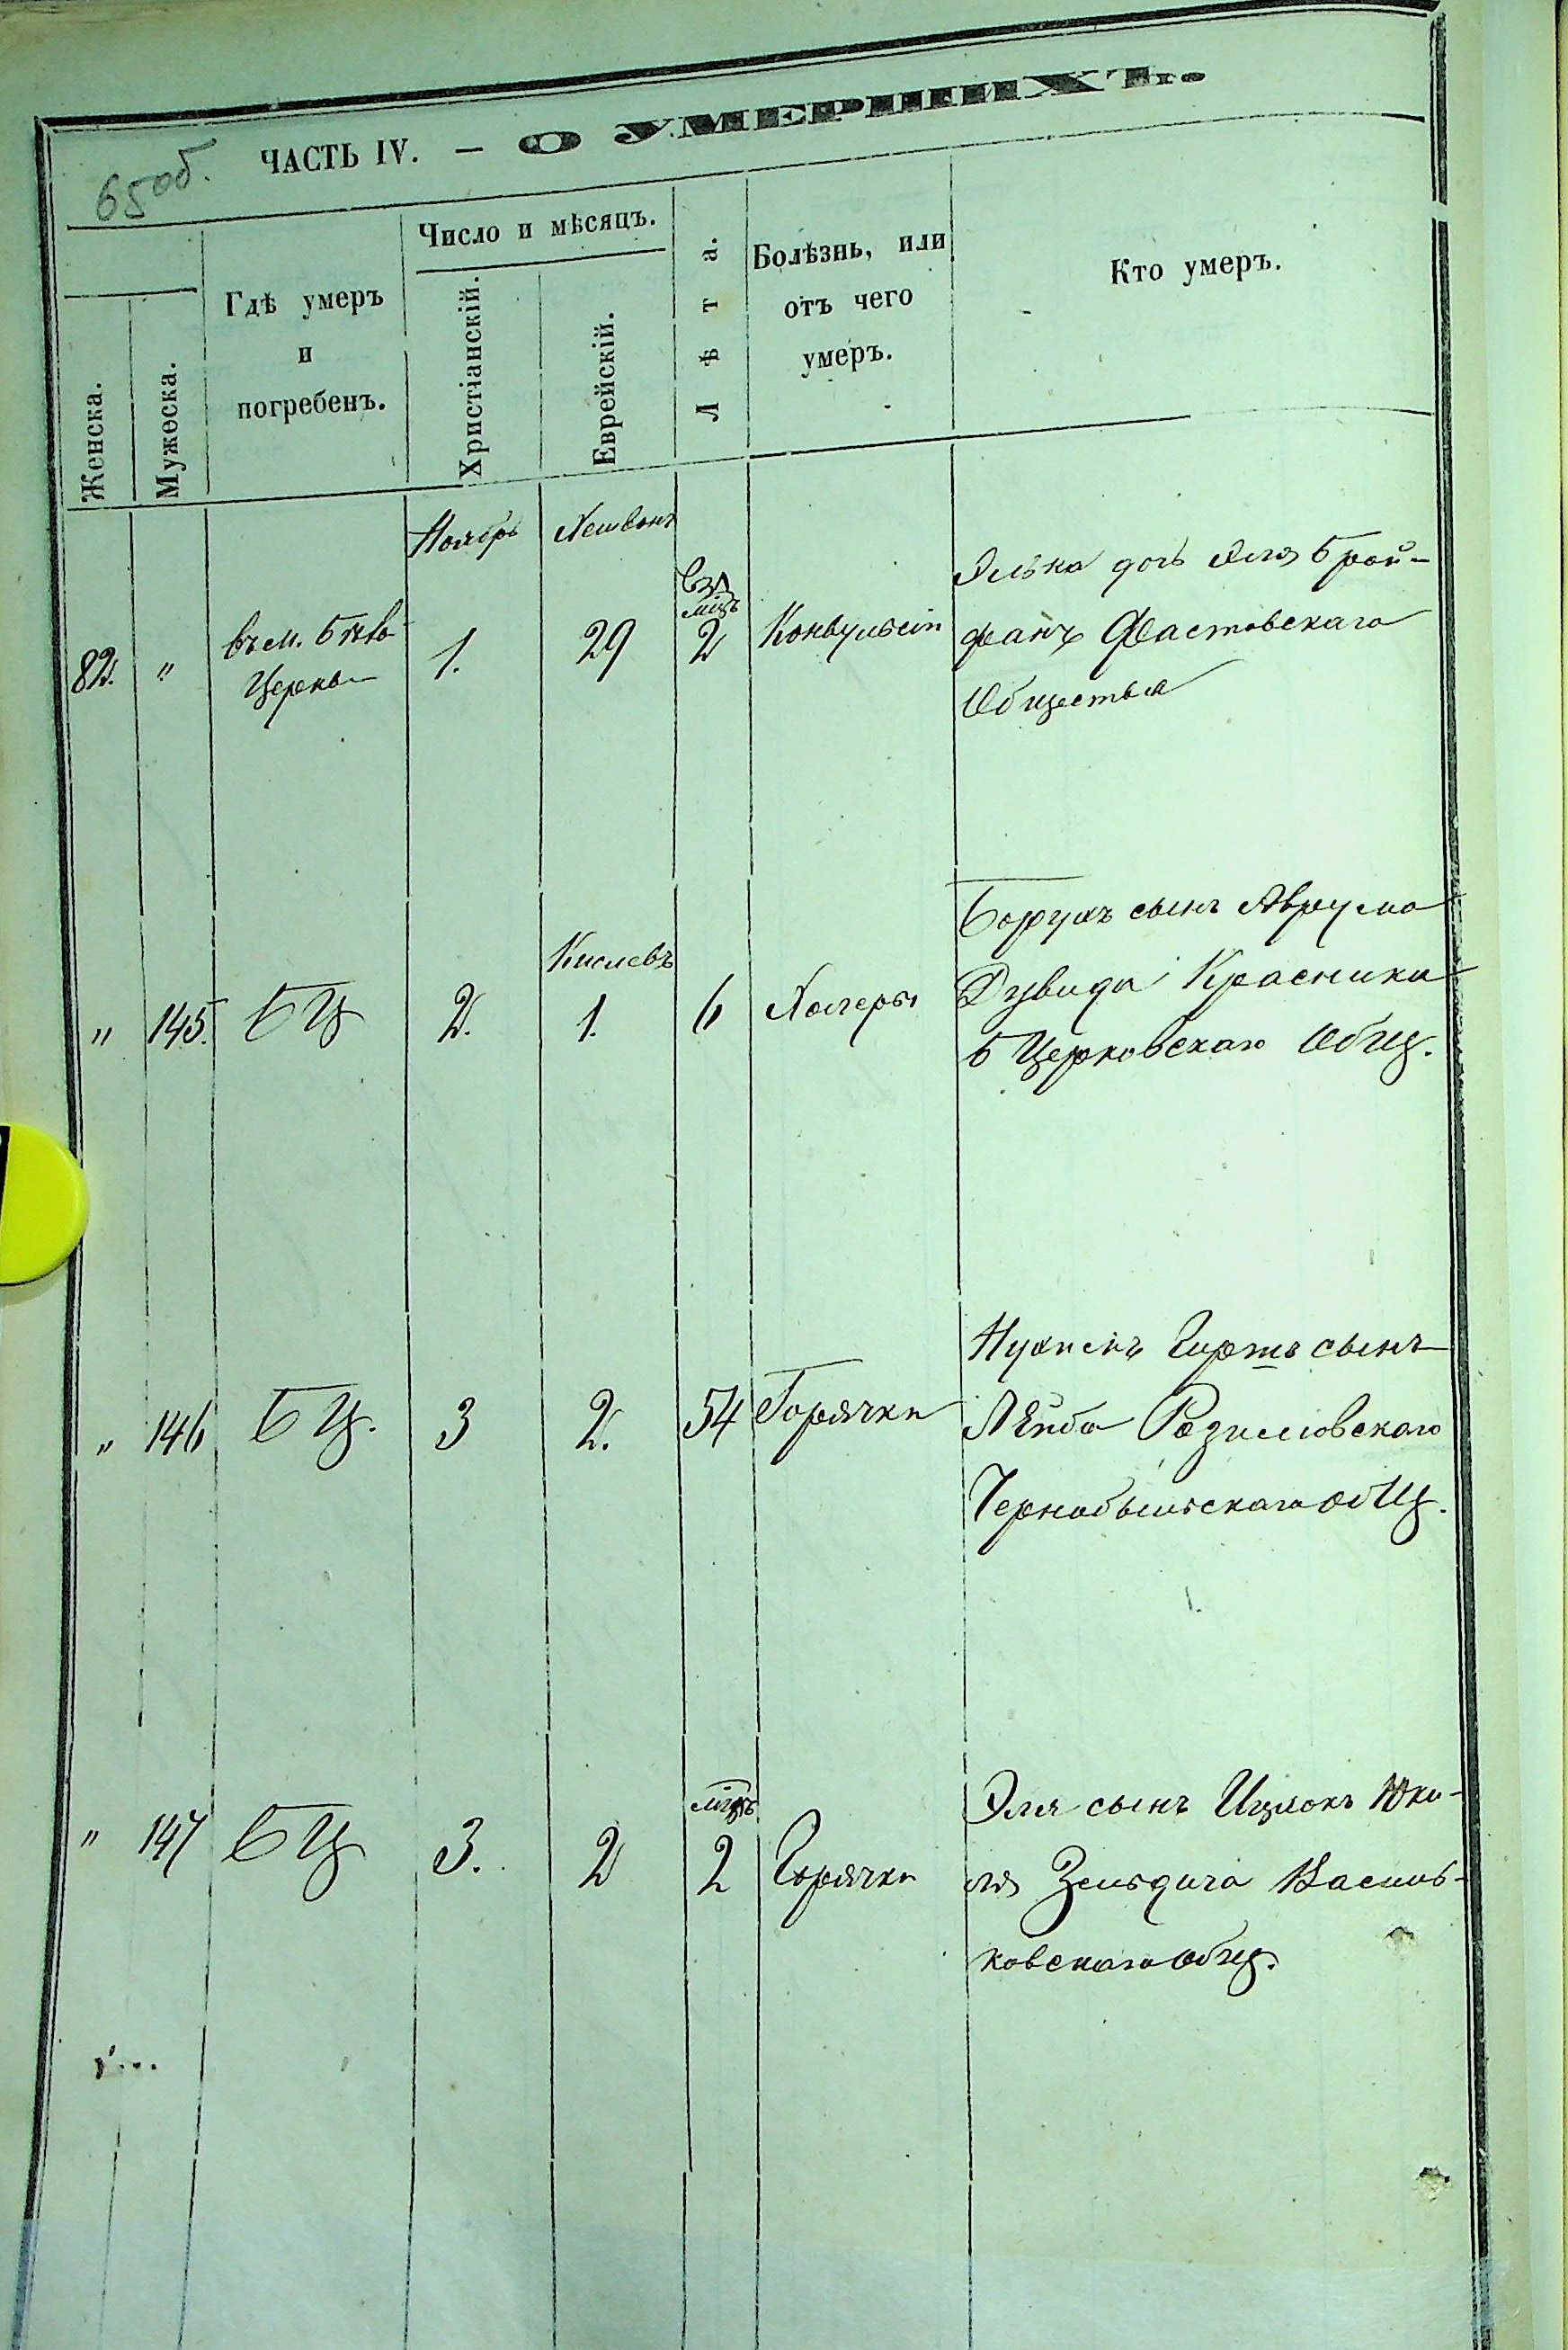 65об.
ЧАСТЬ IV. — О УМЕРШИХЪ.
Женска.
Мужеска.
Гдѣ умеръ
и
погребенъ.
Число и мѣсяцъ.
Христіанскій.
Еврейскій.
Лѣта.
Болѣзнь, или
отъ чего
умеръ.
Кто умеръ.
Ноябрь
Хешвонъ
82.
"
въ м. Бѣло
Церкви
1.
29
міцъ
2
Конвульсіи
Элька дочь Эля Брой-
фанъ Фастовскаго
Общества
"
145.
БЦ
2.
Кислевъ
1.
6
Холеры
Борухъ сынъ Аврума
Дувида Красника
БЦерковскаго Общ.
"
146
БЦ.
3
2.
54
Горячки
Нухимъ Гиршъ сынъ
Лейба
Чернобыльскаго общ.
"
147
БЦ
3.
2
міцъ
2
Горячки
Эля сынъ Ицкокъ Юки-
ля Зельдича Василь-
ковскаго общ.